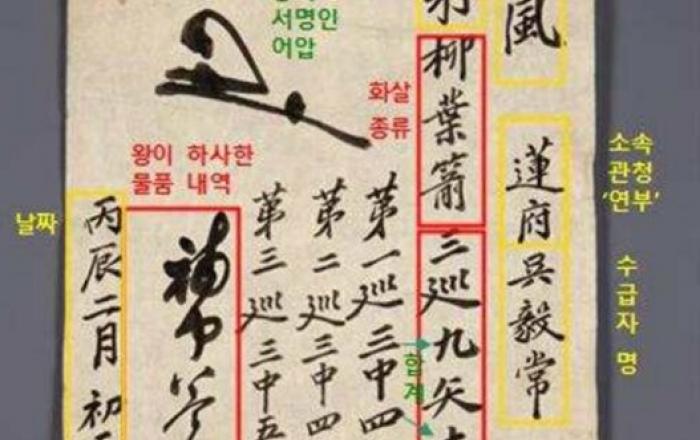 소속
관청
'연부'
수급자 명
風
蓮府
吳毅常
柳葉箭
三巡九矢
화살
종류
합계
第一巡三中四
第二巡三中四
第三巡三中五
서명인
어압
왕이 하사한
물품 내역
날짜
丙辰二月初